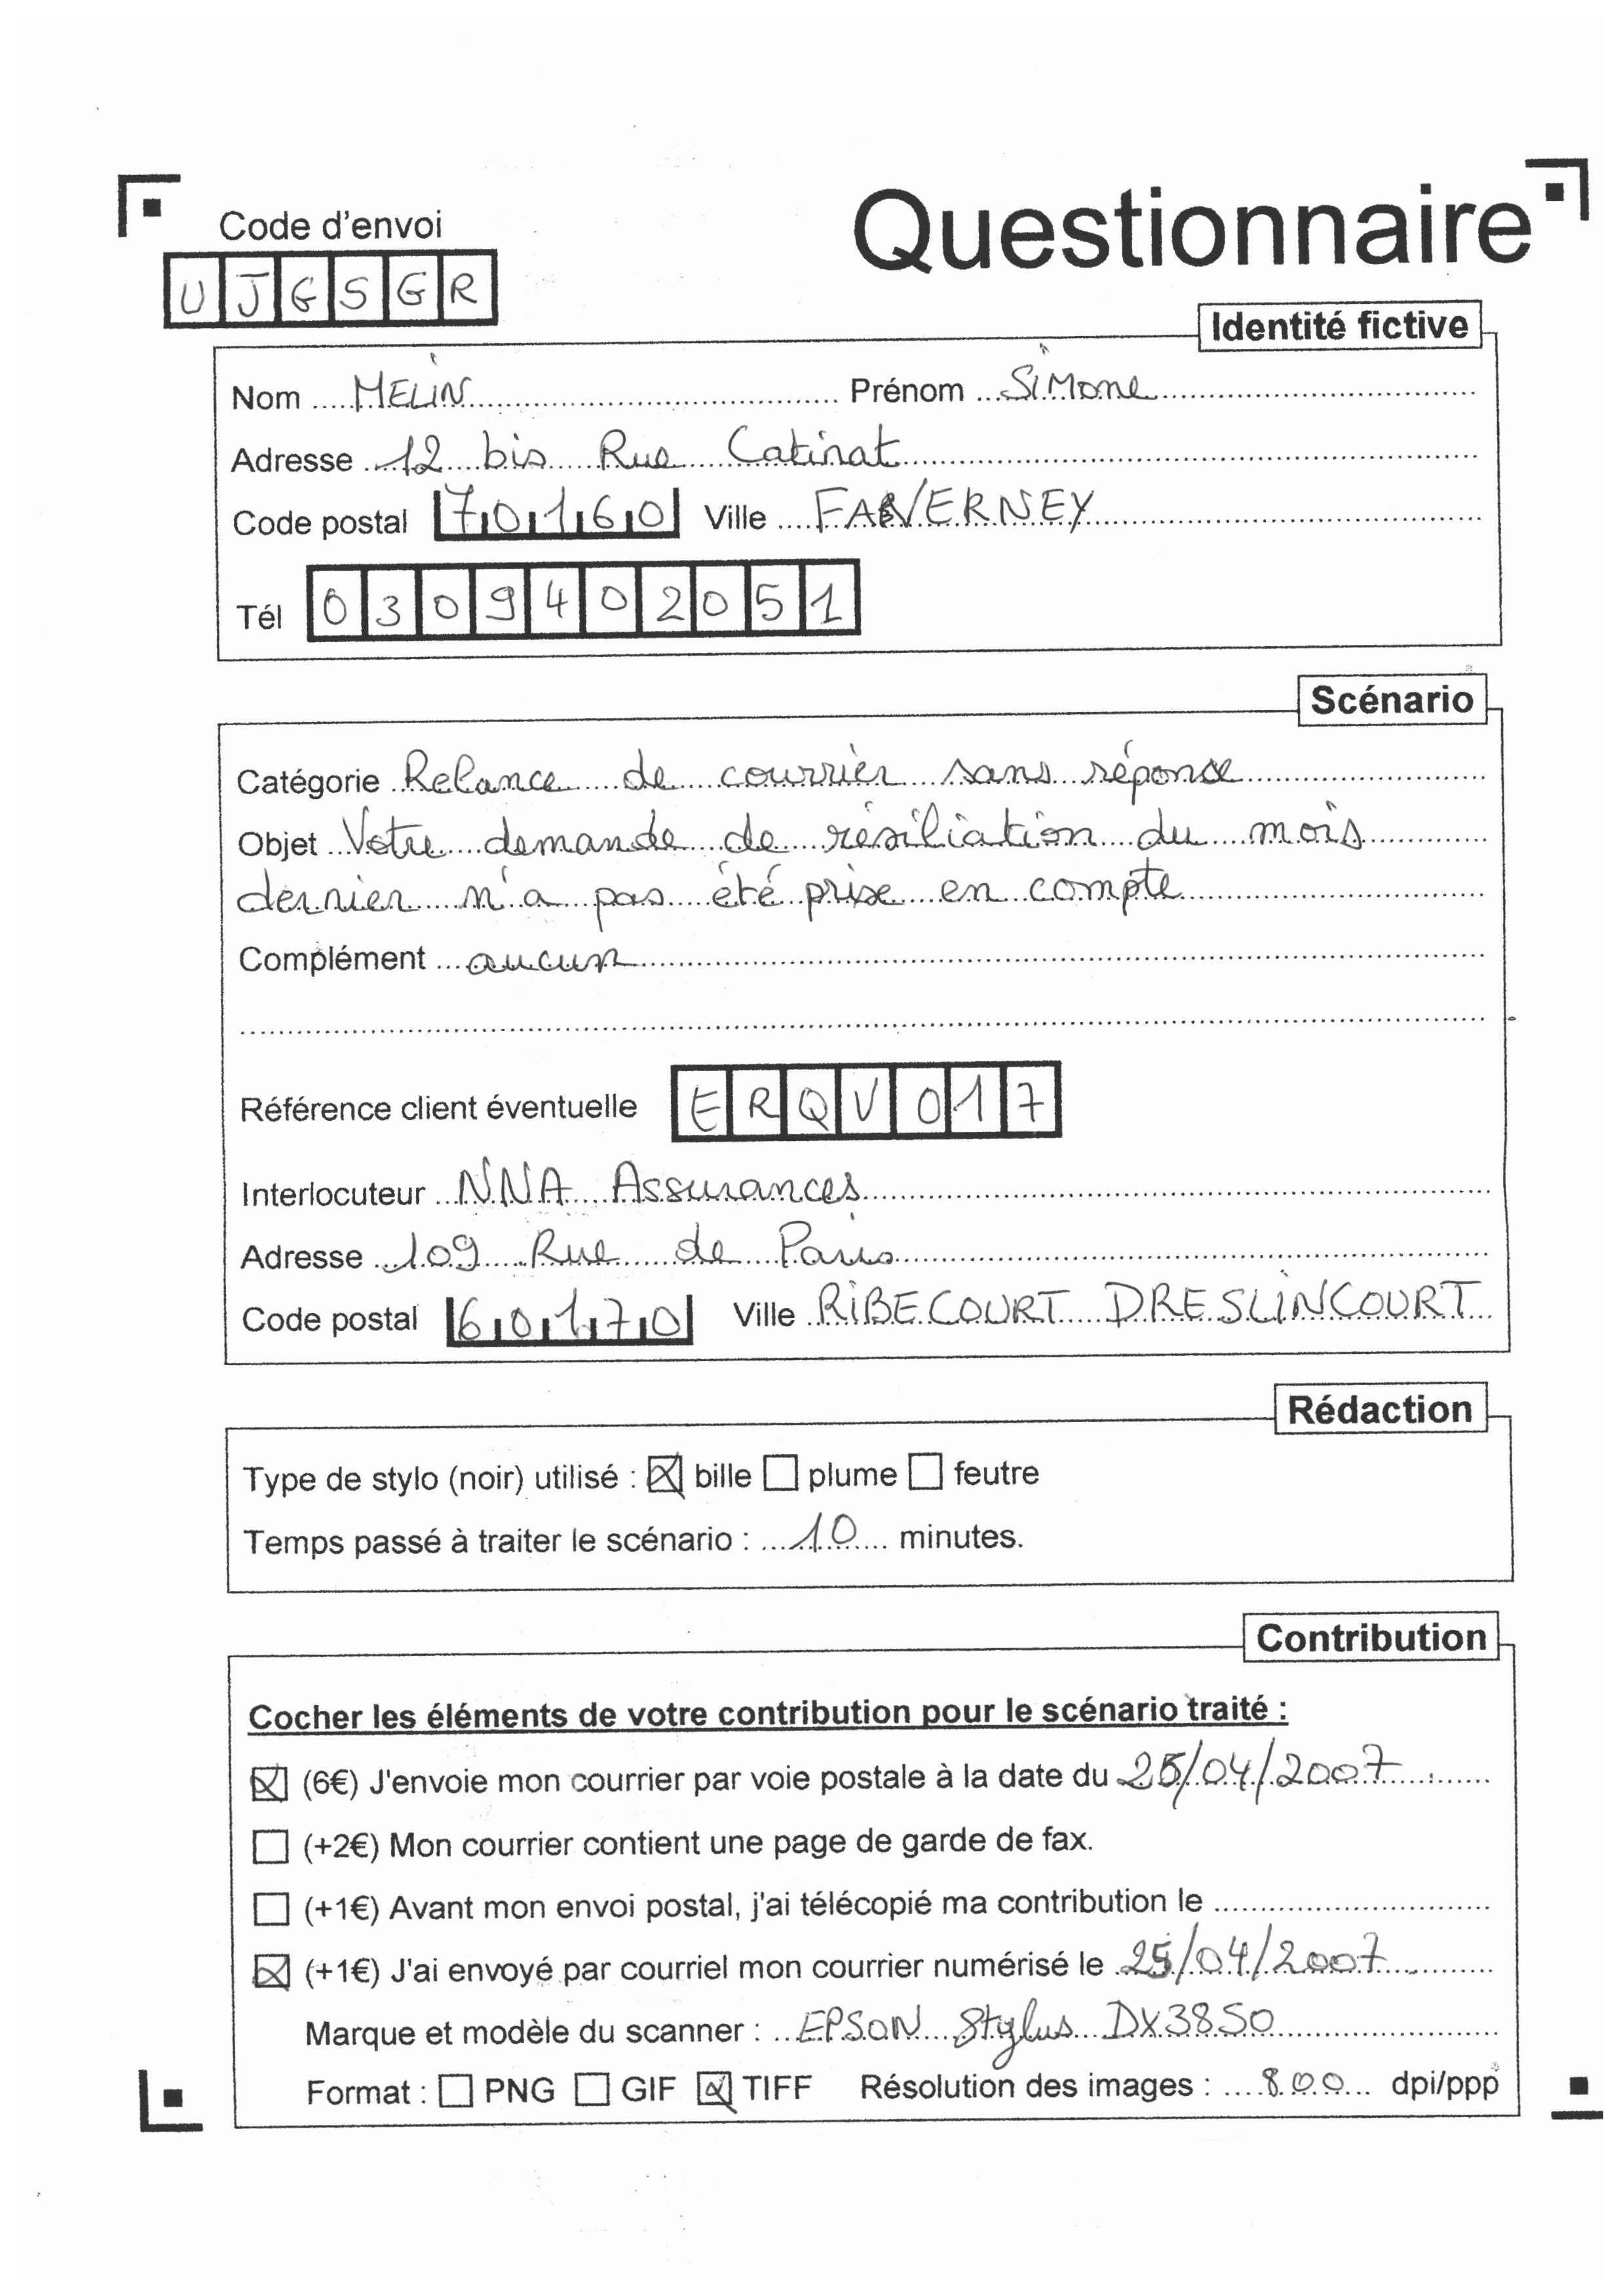 Code d'envoi
Questionnaire
UJGSGR
Identité fictive
Nom MELIN Prénom SiMone
Adresse 12 bis Rue Catinat
Code postal 70160 Ville FAVERNEY
Tél 0309402051
Scénario
Catégorie Relance de courrier sans réponse
Objet Votre demande de résiliation du mois
dernier n'a pas été prise en compte
Complément aucun
Référence client éventuelle ERQV017
Interlocuteur NNA Assurances
Adresse 109 Rue de Paris
Code postal 60170 Ville RIBECOURT DRESLINCOURT
Rédaction
Type de stylo (noir) utilisé : ☒ bille ☐ plume ☐ feutre
Temps passé à traiter le scénario : 10 minutes.
Contribution
Cocher les éléments de votre contribution pour le scénario traité :
☒ (6€) J'envoie mon courrier par voie postale à la date du 25/04/2007
☐ (+2€) Mon courrier contient une page de garde de fax.
☐ (+1€) Avant mon envoi postal, j'ai télécopié ma contribution le
☒ (+1€) J'ai envoyé par courriel mon courrier numérisé le 25/04/2007
Marque et modèle du scanner : EPSON Stylus DX3850
Format : ☐ PNG ☐ GIF ☒ TIFF Résolution des images : 800 dpi/ppp